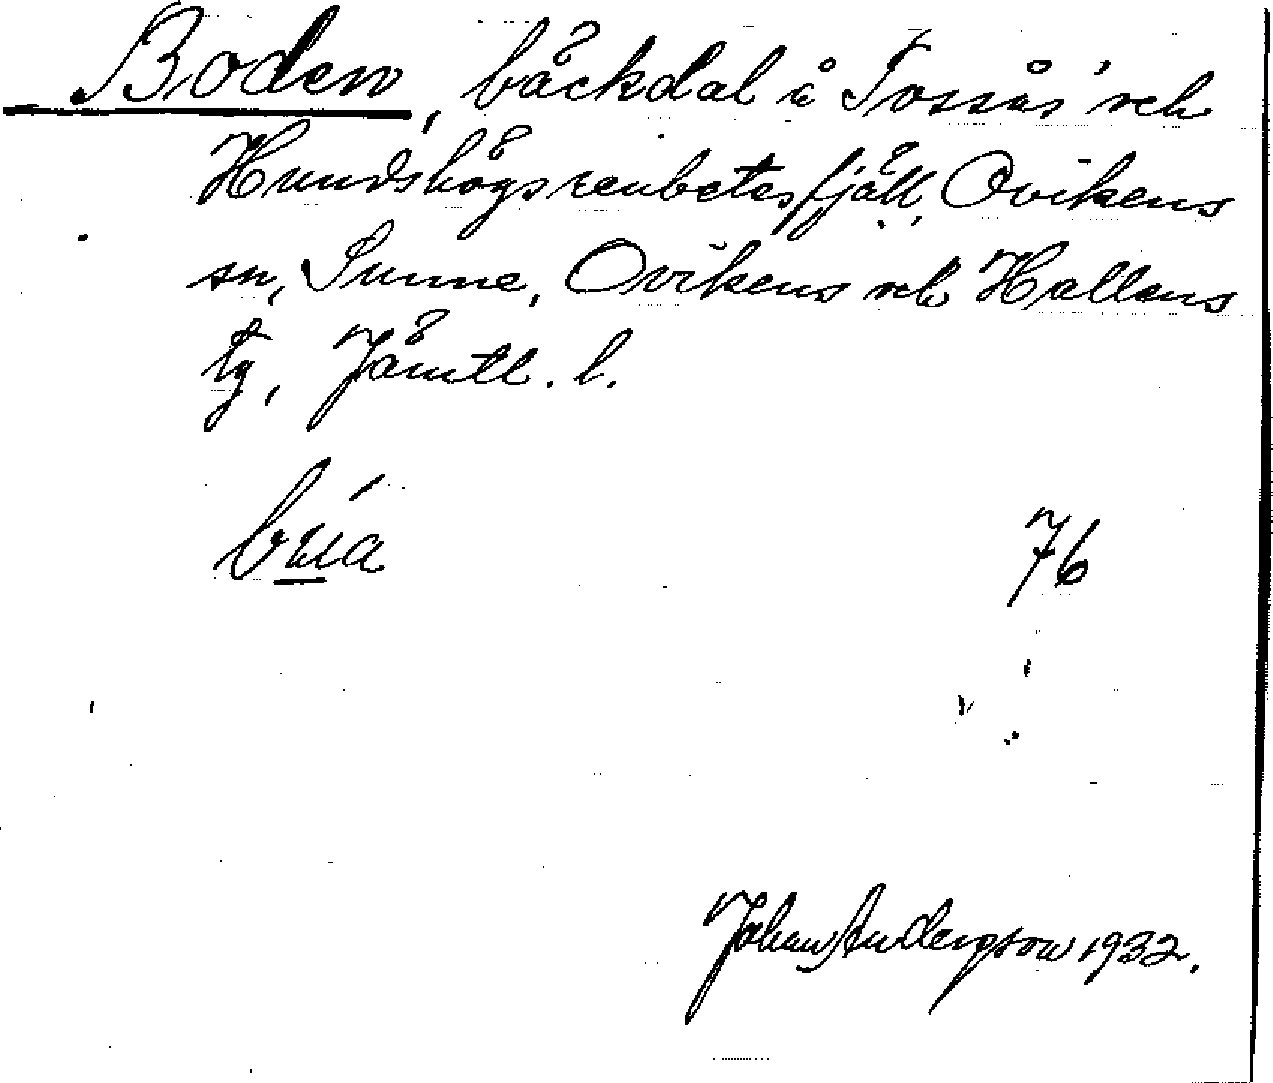 Boden, bäckdal å Tossås' och
Hundshögs renbetesfjäll, Ovikens
sn, Sunne, Ovikens och Hallens
tg, Jämtl. l.
búa
76
Johan Andersson 1932.